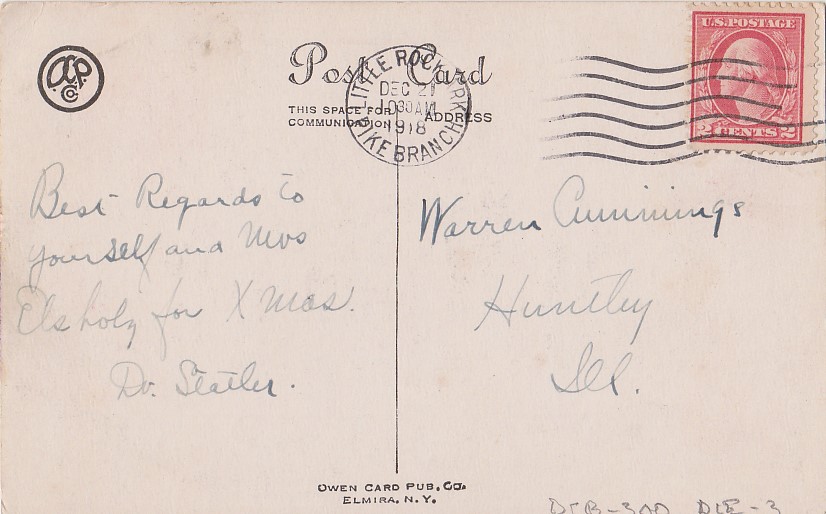 OCP.
Co
Post Card
THIS SPACE FOR
COMMUNICATION
ADDRESS
LITTLE ROCK, ARK.
DEC 21
1030 AM
1918
PIKE BRANCH
U.S. POSTAGE
2 CENTS 2
Best Regards to
yourself and Mrs
Elsholy for X Mas.
Dr. Statler.
Warren Cummings
Huntley
Ill.
OWEN CARD PUB. CO.
ELMIRA, N.Y.